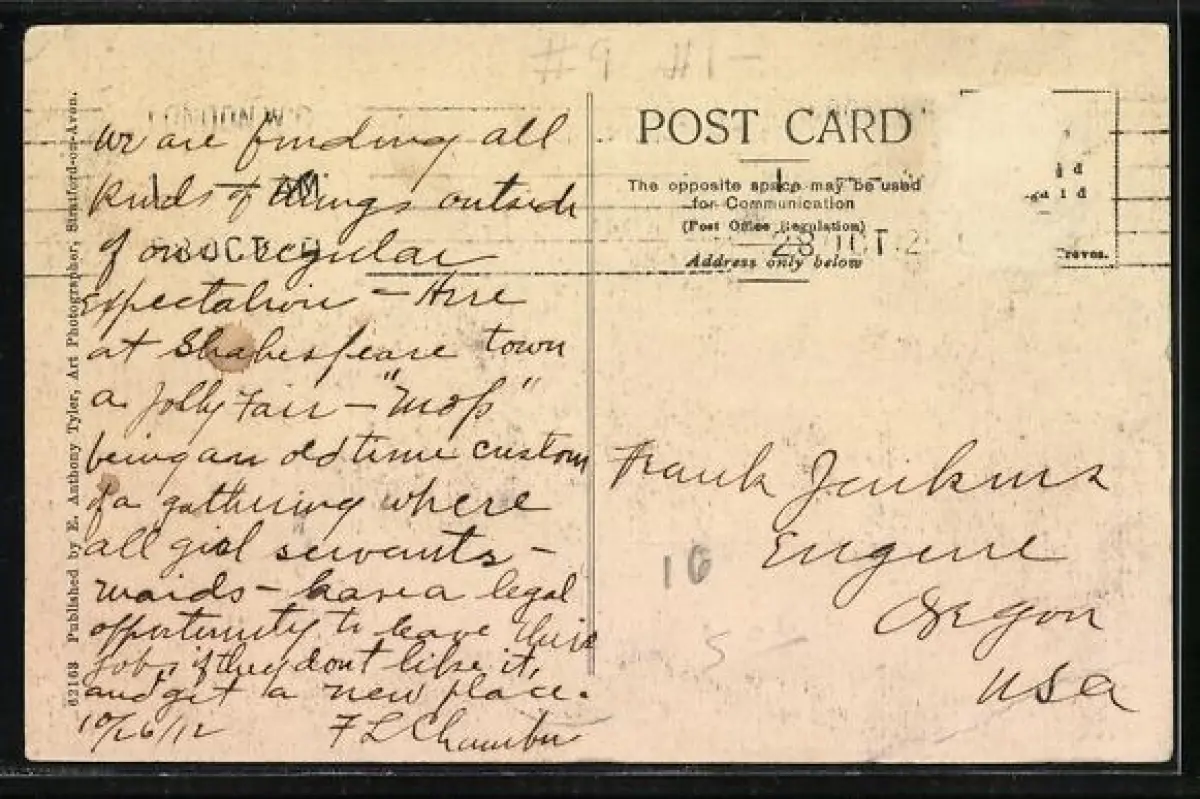 #9 #1-
62163 Published by E. Anthony Tyler, Art Photographer, Stratford-on-Avon.
LONDON W.C
We are finding all
kinds of things outside
of our regular
expectation - Here
at Shakespeare town
a Jolly Fair - "Mop"
being an old time custom
of a gathering where
all girl servants -
maids - have a legal
opportunity to leave their
jobs if they dont like it,
and get a new place.
10/26/12 F L Chamber
POST CARD
The opposite space may be used
for Communication
(Post Office Regulation)
Address only below
28 OCT
Frank Jenkins
Eugene
Oregon
USA
16
5